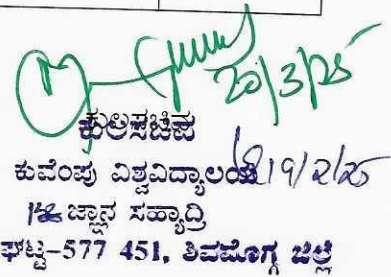 20/3/25
ಕುಲಸಚಿವ
ಕುವೆಂಪು ವಿಶ್ವವಿದ್ಯಾಲಯ 19/2/25
ಜ್ಞಾನ ಸಹ್ಯಾದ್ರಿ
ಘಟ್ಟ-577 451, ಶಿವಮೊಗ್ಗ ಜಿಲ್ಲೆ